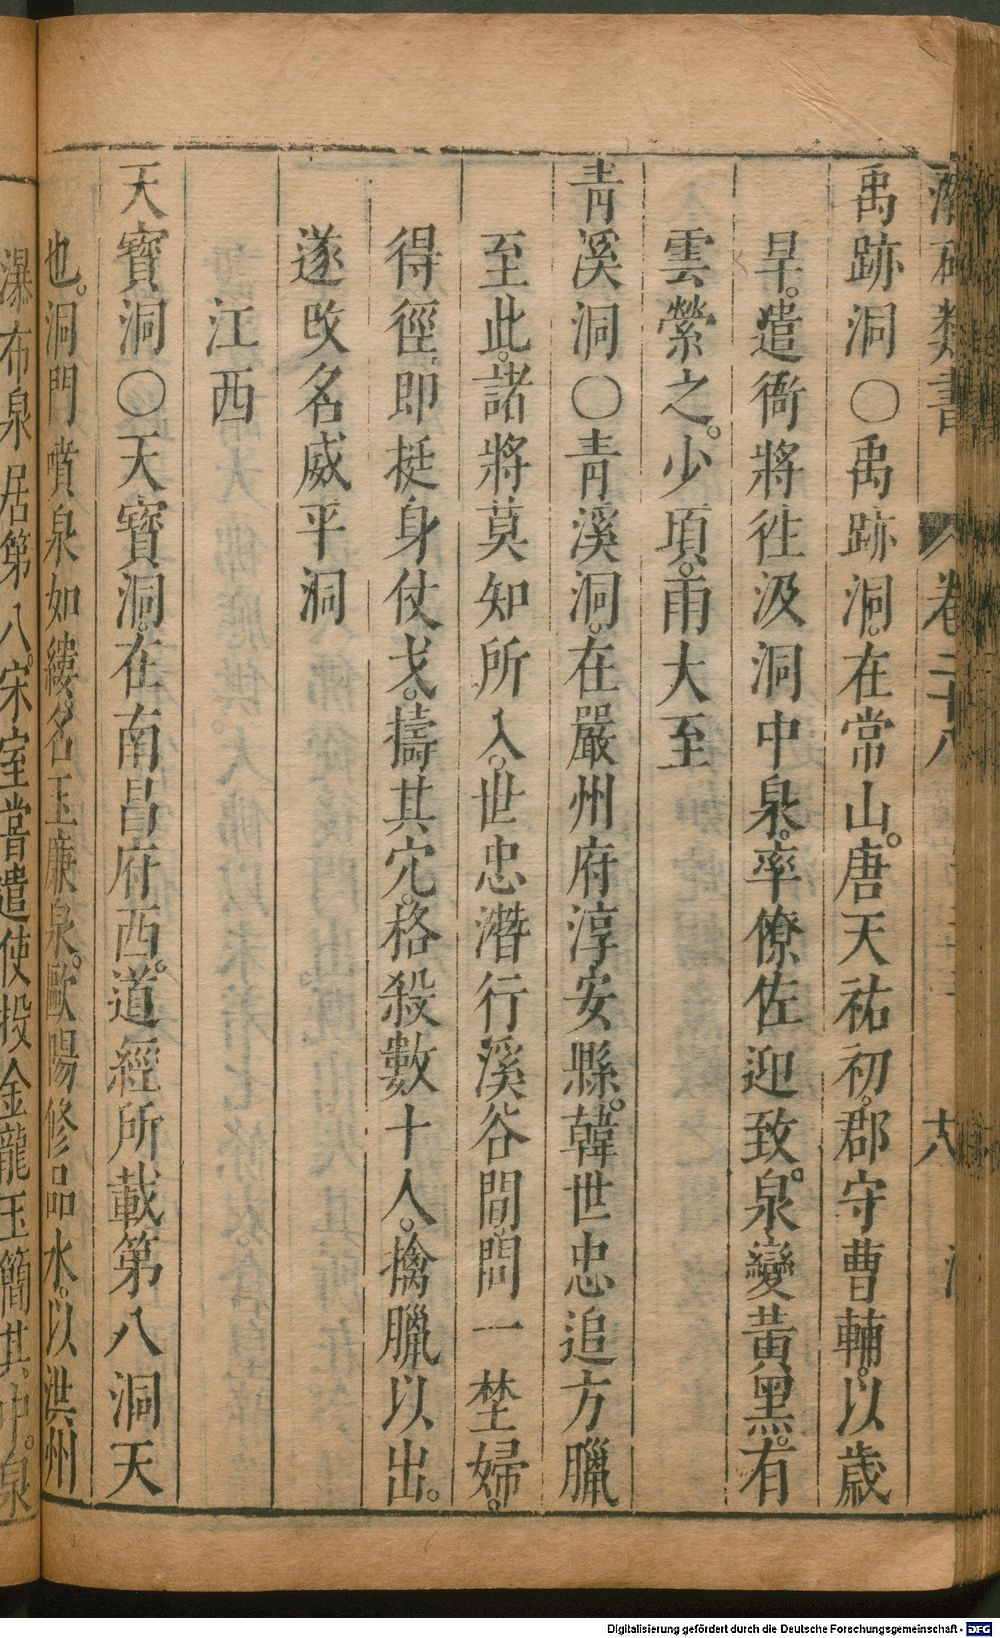 類書 卷三十八 十八
禹跡洞〇禹跡洞。在常山。唐天祐初。郡守曹輔。以歲
旱。遣衙將往汲洞中泉。率僚佐迎致。泉變黃黑。有
雲縈之。少頃。雨大至
青溪洞〇青溪洞。在嚴州府淳安縣。韓世忠追方臘
至此。諸將莫知所入。世忠潛行溪谷間。問一埜婦。
得徑。即挺身仗戈。擣其穴。格殺數十人。擒臘以出。
遂改名威平洞
江西
天寶洞〇天寶洞。在南昌府西。道經所載第八洞天
也。洞門噴泉如縷。名玉廉泉。歐陽修品水。以洪州
瀑布泉居第八。宋室嘗遣使投金龍玉簡其中。泉
Digitalisierung gefördert durch die Deutsche Forschungsgemeinschaft - DFG